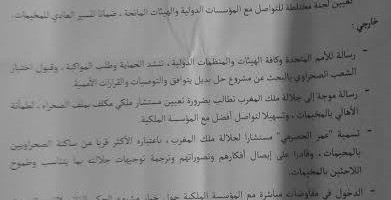 تعيين لجنة مختلطة للتواصل مع المؤسسات الدولية والهيئات المانحة، ضمانا للسير العادي للمخيمات.
خارجي :
- رسالة للأمم المتحدة وكافة الهيئات والمنظمات الدولية، تنشد الحماية وطلب المواكبة، وقبول اختيار
الشعب الصحراوي بالبحث عن مشروع حل بديل يتوافق والتوصيات والقرارات الأممية.
- رسالة موجهة إلى جلالة ملك المغرب تطالب بضرورة تعيين مستشار ملكي مكلف بملف الصحراء، لطمأنة
الأهالي بالمخيمات، وتسهيلا لتواصل أفضل مع المؤسسة الملكية.
- تسمية "عمر الحضرمي" مستشارا لجلالة ملك المغرب، باعتباره الأكثر قربا عن ساكنة الصحراويين
بالمخيمات، وقادرا على إيصال أفكارهم وتصوراتهم وترجمة توجيهات جلالته بما يتناسب وطموح
اللاجئين بالمخيمات.
- الدخول في مفاوضات مباشرة مع المؤسسة الملكية حول خيار مشروع الحكم